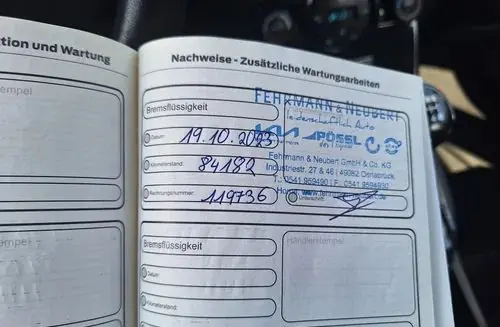 tion und Wartung
Nachweise - Zusätzliche Wartungsarbeiten
Bremsflüssigkeit
Datum: 19.10.2023
Kilometerstand: 84182
Rechnungsnummer: 119736
FEHRMANN & NEUBERT
Leidenschaftlich Auto
KIA PÖSSL
Fehrmann & Neubert GmbH & Co. KG
Industriestr. 27 & 46 | 49082 Osnabrück
T.: 0541 959490 | F.: 0541 9594930
Unterschrift:
Bremsflüssigkeit
Datum:
Kilometerstand:
Händlerstempel